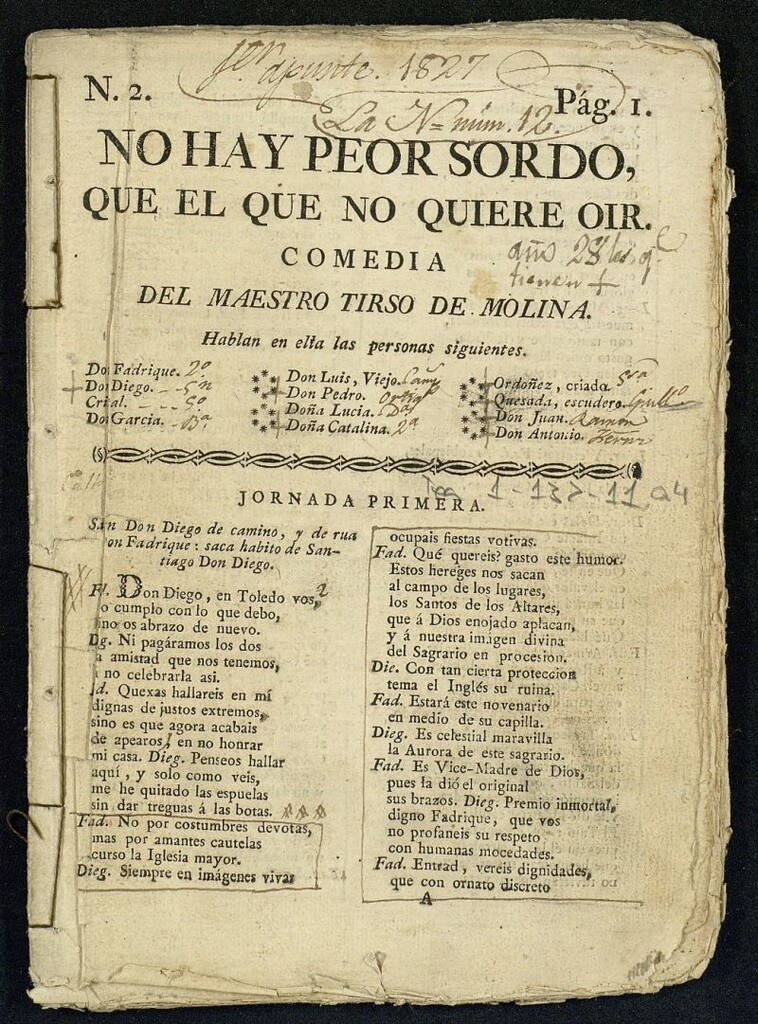 apunte. 1827
N. 2.
Pág. 1.
La N= núm. 12.
NO HAY PEOR SORDO,
QUE EL QUE NO QUIERE OIR.
COMEDIA
año 28
tienen +
DEL MAESTRO TIRSO DE MOLINA.
Hablan en ella las personas siguientes.
Do Fadrique. 2º
Do Diego.
Crial. 5º
Do Garcia.
Don Luis, Viejo.
Don Pedro.
Doña Lucia.
Doña Catalina. 2ª
Ordoñez, criado.
Quesada, escudero.
Don Juan. Ramon
Don Antonio.
1-132-11, a4
JORNADA PRIMERA.
San Don Diego de camino, y de rua
on Fadrique: saca habito de San-
tiago Don Diego.
F. Don Diego, en Toledo vos,
o cumplo con lo que debo,
ino os abrazo de nuevo.
Dg. Ni pagáramos los dos
a amistad que nos tenemos,
i no celebrarla asi.
d. Quexas hallareis en mí
dignas de justos extremos,
sino es que agora acabais
de apearos, en no honrar
mi casa. Dieg. Penseos hallar
aquí, y solo como veis,
me he quitado las espuelas
sin dar treguas á las botas.
Fad. No por costumbres devotas,
mas por amantes cautelas
curso la Iglesia mayor.
Dieg. Siempre en imágenes vivas
ocupais fiestas votivas.
Fad. Qué quereis? gasto este humor.
Estos hereges nos sacan
al campo de los lugares,
los Santos de los Altares,
que á Dios enojado aplacan,
y á nuestra imágen divina
del Sagrario en procesion.
Die. Con tan cierta proteccion
tema el Inglés su ruina.
Fad. Estará este novenario
en medio de su capilla.
Dieg. Es celestial maravilla
la Aurora de este sagrario.
Fad. Es Vice-Madre de Dios,
pues la dió el original
sus brazos. Dieg. Premio inmortal,
digno Fadrique, que vos
no profaneis su respeto
con humanas mocedades.
Fad. Entrad, vereis dignidades,
que con ornato discreto
A